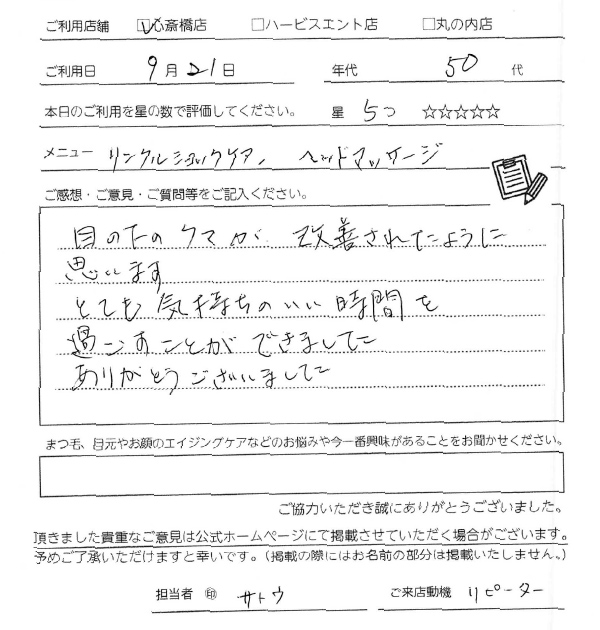 ご利用店舗 ☑心斎橋店 □ハービスエント店 □丸の内店
ご利用日 9月21日 年代 50代
本日のご利用を星の数で評価してください。 星 5つ ☆☆☆☆☆
メニュー リンクルショックケア、ヘッドマッサージ
ご感想・ご意見・ご質問等をご記入ください。
目の下のクマが、改善されたように
思います
とても気持ちのいい時間を
過ごすことができました
ありがとうございました
まつ毛、目元やお顔のエイジングケアなどのお悩みや今一番興味があることをお聞かせください。
ご協力いただき誠にありがとうございました。
頂きました貴重なご意見は公式ホームページにて掲載させていただく場合がございます。
予めご了承いただけますと幸いです。(掲載の際にはお名前の部分は掲載いたしません。)
担当者 ㊞ サトウ ご来店動機 リピーター